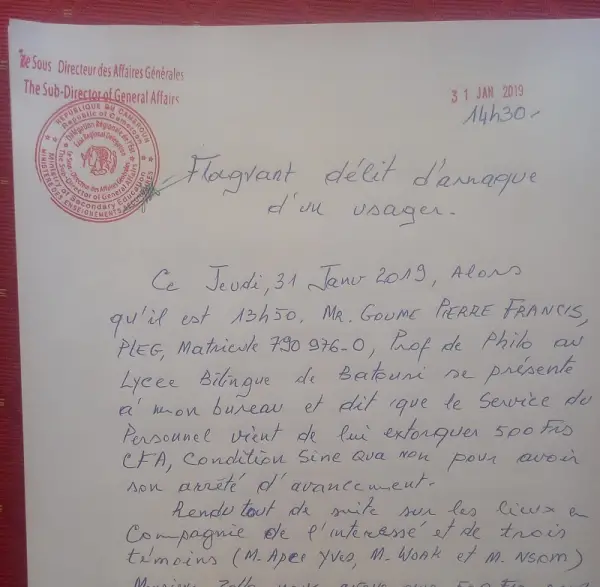 Le Sous Directeur des Affaires Générales
The Sub-Director of General Affairs
31 JAN 2019
14h30
REPUBLIQUE DU CAMEROUN
Republic of Cameroon
Flagrant délit d'arnaque
d'un usager.
Ce Jeudi, 31 Janv 2019, Alors
qu'il est 13h50. Mr. GOUME PIERRE FRANCIS,
PLEG, Matricule 790 976-O, Prof de Philo au
Lycee Bilingue de Batouri se présente
à mon bureau et dit que le Service du
Personnel vient de lui extorquer 500 Frs
CFA, Condition Sine Qua Non pour avoir
son arrêté d'avancement.
Rendu tout de suite sur les lieux en
Compagnie de l'interessé et de trois
témoins (M. Apee Yves, M. WOAK et M. Nsom)
Monsieur Zollo